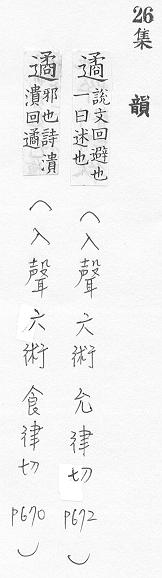 26集韻
遹說文回避也一曰迷也（入聲 六術 允律切 P672）
遹邪也詩潰潰回遹（入聲 六術 食律切 P670）